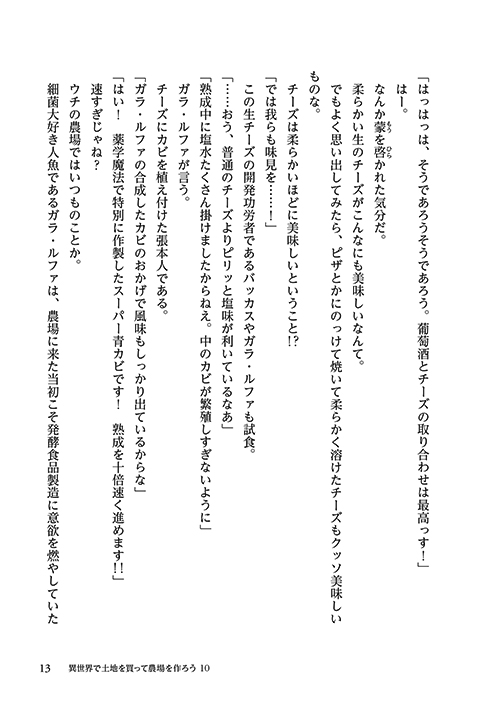 「はっはっは、そうであろうそうであろう。葡萄酒とチーズの取り合わせは最高っす！」
はー。
なんか蒙を啓かれた気分だ。
柔らかい生のチーズがこんなにも美味しいなんて。
でもよく思い出してみたら、ピザとかにのっけて焼いて柔らかく溶けたチーズもクッソ美味しい
ものな。
チーズは柔らかいほどに美味しいということ!?
「では我らも味見を……！」
この生チーズの開発功労者であるバッカスやガラ・ルファも試食。
「……おう、普通のチーズよりピリッと塩味が利いているなあ」
「熟成中に塩水たくさん掛けましたからねえ。中のカビが繁殖しすぎないように」
ガラ・ルファが言う。
チーズにカビを植え付けた張本人である。
「ガラ・ルファの合成したカビのおかげで風味もしっかり出ているからな」
「はい！　薬学魔法で特別に作製したスーパー青カビです！　熟成を十倍速く進めます!!」
速すぎじゃね？
ウチの農場ではいつものことか。
細菌大好き人魚であるガラ・ルファは、農場に来た当初こそ発酵食品製造に意欲を燃やしていた
13　異世界で土地を買って農場を作ろう 10